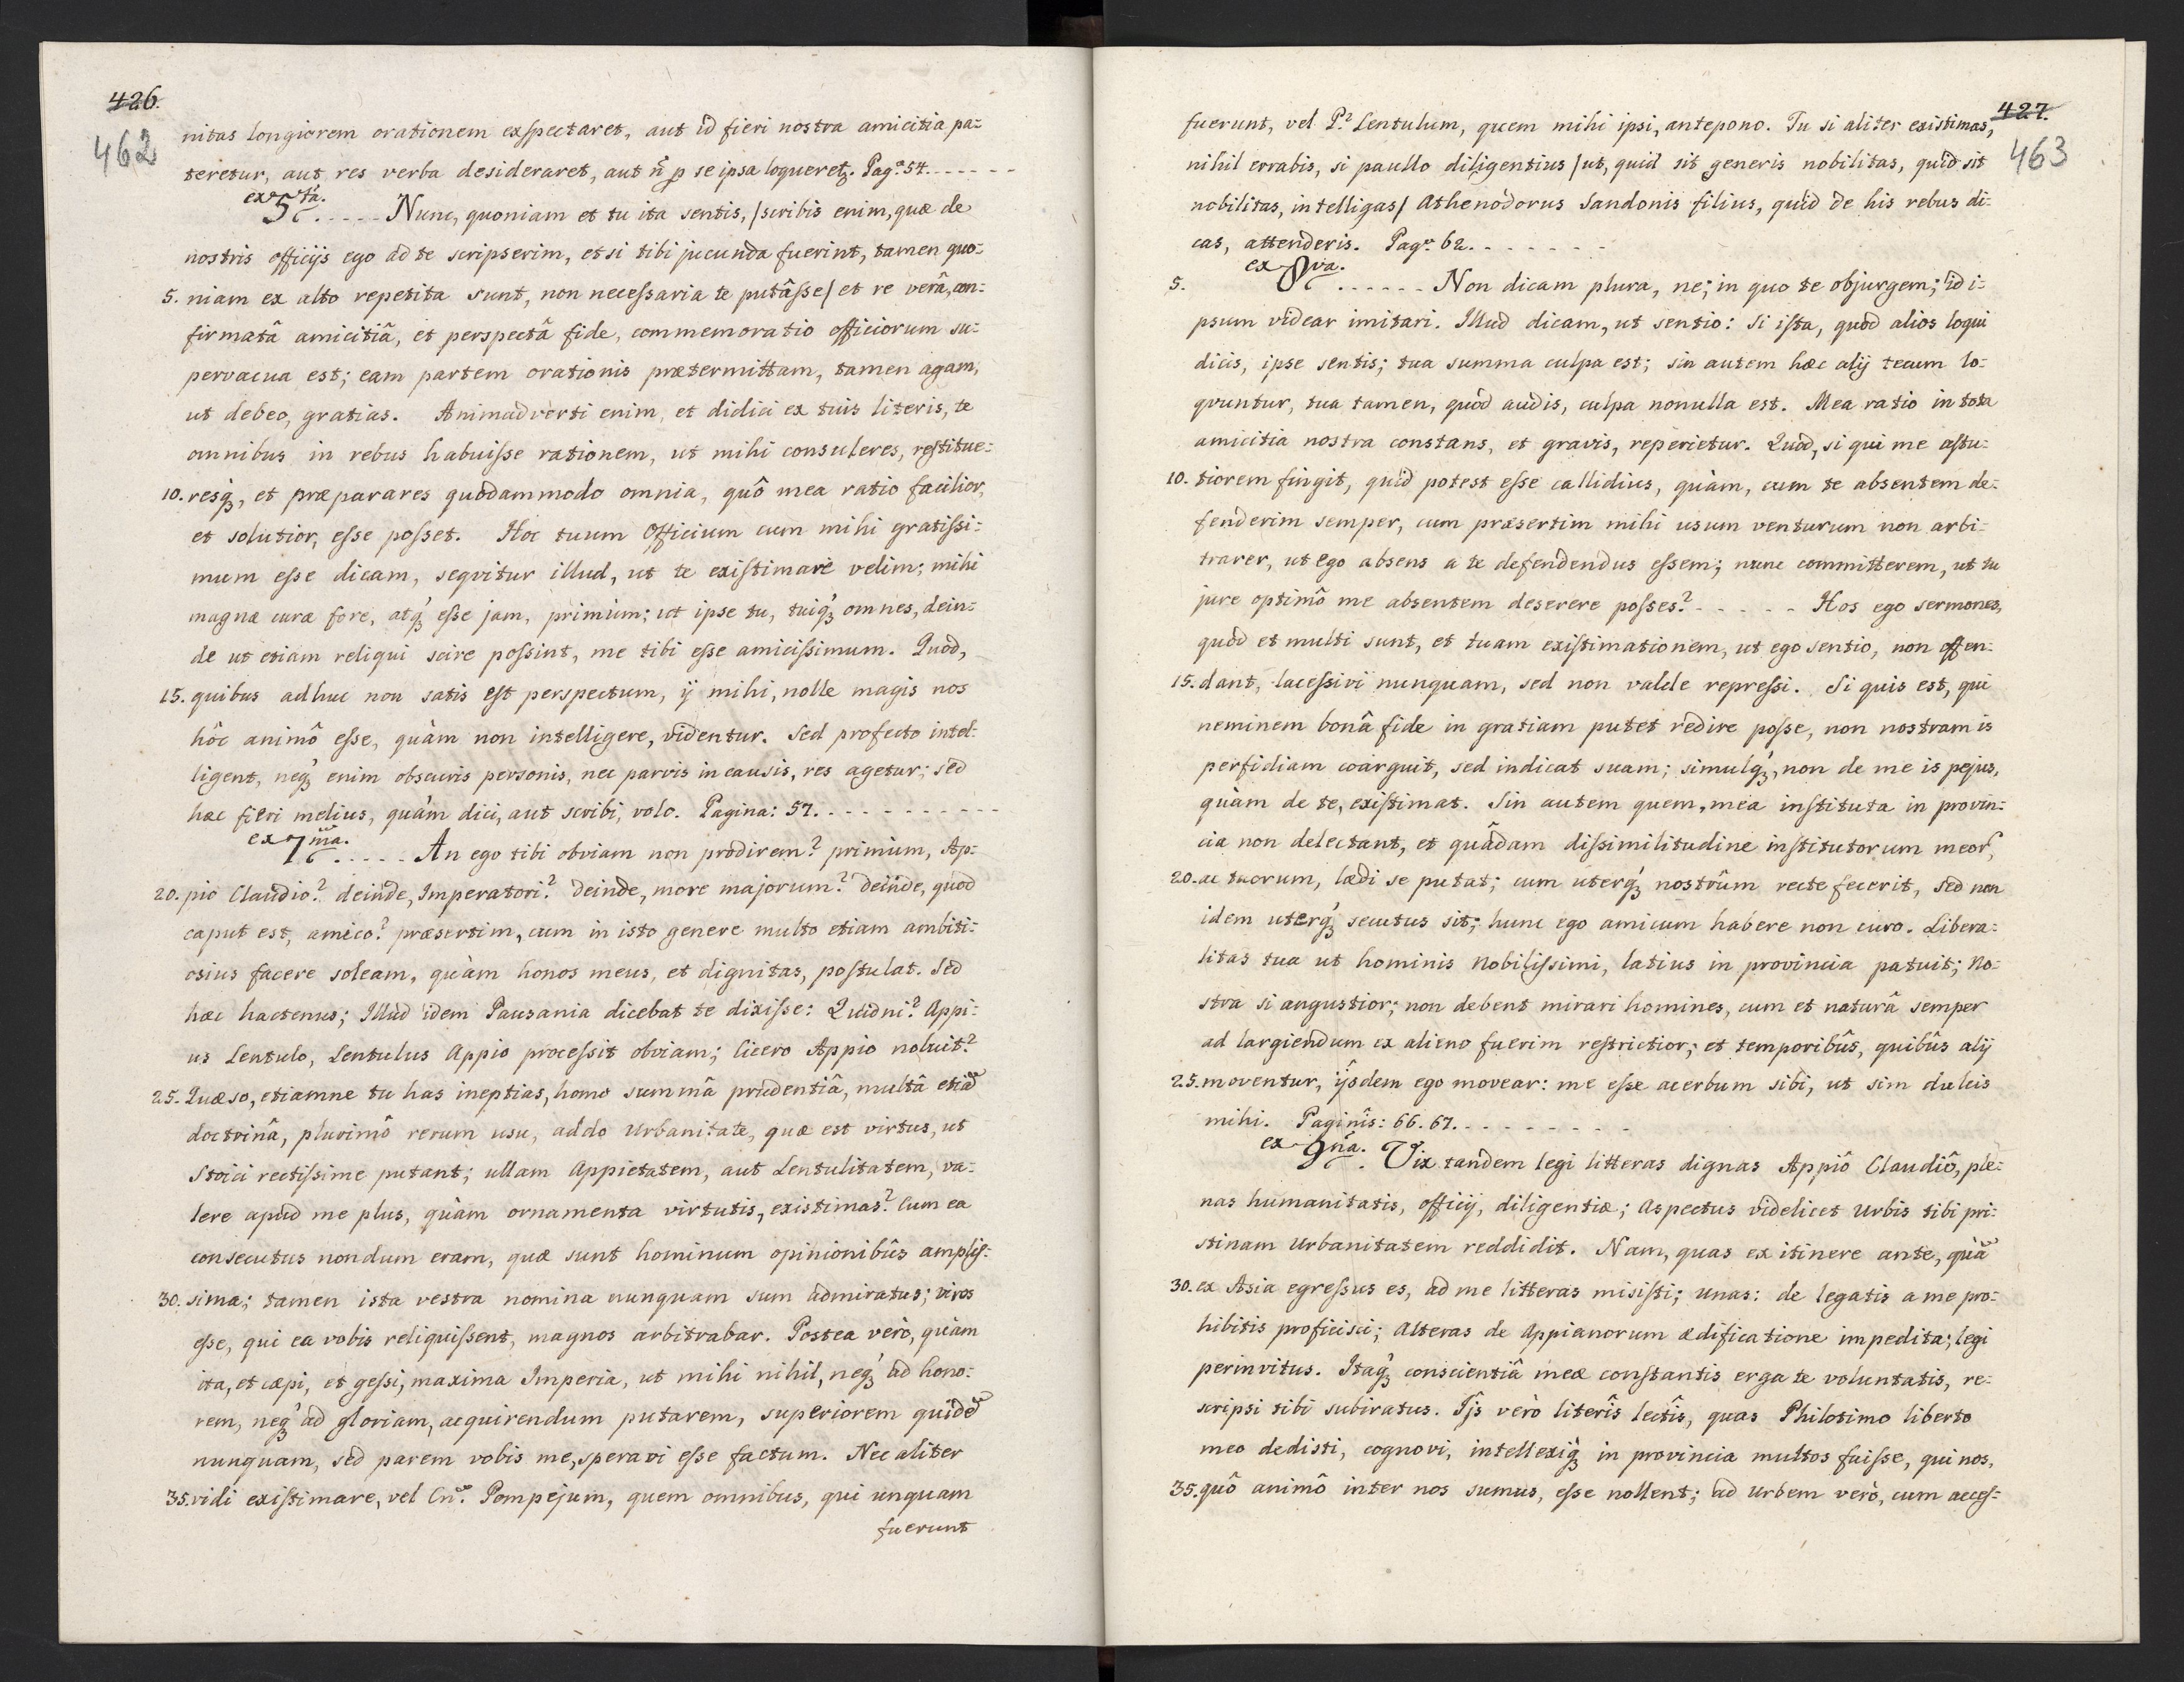 426.
462
nitas longiorem orationem exspectaret, aut id fieri nostra amicitia pa=
teretur, aut res verba desideraret, aut n̄ ꝑ se ipsa loqueretʒ. Pagª 54. - - - - - -
ex 5ta. - - - - Nunc, quoniam et tu ita sentis, /scribis enim, quæ de
nostris officijs ego ad te scripserim, etsi tibi jucunda fuerint, tamen quo=
5. niam ex alto repetita sunt, non neceſsaria te putâſse/ et re verâ, con=
firmatâ amicitiâ, et perspectâ fide, commemoratio officiorum su=
pervacua est; eam partem orationis prætermittam, tamen agam,
ut debeo, gratias. Animadverti enim, et didici ex tuis literis, te
omnibus in rebus habuiſse rationem, ut mihi consuleres, reſtitue=
10. resqʒ, et præparares quodammodo omnia, quô mea ratio facilior,
et solutior, eſse poſset. Hoc tuum Officium cum mihi gratiſsi=
mum eſse dicam, seqvitur illud, ut te exiſtimare velim; mihi
magnæ curæ fore, atqʒ eſse jam, primùm; ut ipse tu, tuiqʒ omnes, dein=
de ut etiam reliqui scire poſsint, me tibi eſse amiciſsimum. Quod,
15. quibus adhuc non satis eſt perspectum, ij mihi, nolle magis nos
hôc animô eſse, quàm non intelligere, videntur. Sed profecto intel=
ligent, neqʒ enim obscuris personis, nec parvis in causis, res agetur; sed
hæc fieri melius, quàm dici, aut scribi, volo. Pagina: 57. - - - - - - - - - -
ex 7ma. - - - - An ego tibi obviam non prodirem? primùm, Ap=
20. pio Claudio? deinde, Imperatori? deinde, more majorum? deinde, quod
caput est, amico? præsertim, cum in isto genere multo etiam ambiti=
osius facere soleam, quàm honos meus, et dignitas, poſtulat. Sed
hæc hactenus; Illud idem Pausania dicebat te dixiſse: Quidni? Appi=
us Lentulo, Lentulus Appio proceſsit obviam; Cicero Appio noluit?
25. Quæso, etiamne tu has ineptias, homo summâ prudentiâ, multâ etia᷉
doctrinâ, plurimô rerum usu, addo Urbanitate, quæ est virtus, ut
Stoici rectiſsime putant; ullam Appietatem, aut Lentulitatem, va=
lere apud me plus, quàm ornamenta virtutis, existimas? Cum ea
consecutus nondum eram, quæ sunt hominum opinionibûs ampliſ=
30. sima; tamen ista vestra nomina nunquam sum admiratus; viros
eſse, qui ea vobis reliquiſsent, magnos arbitrabar. Postea verò, quàm
ita, et cæpi, et geſsi, maxima Imperia, ut mihi nihil, neqʒ ad hono=
rem, neqʒ ad gloriam, acquirendum putarem, superiorem quide᷉
nunquam, sed parem vobis me, speravi eſse factum. Nec aliter
35. vidi exiſtimare, vel Cn. Pompejum, quem omnibus, qui unquam
fuerunt
427.
463
fuerunt, vel P. Lentulum, quem mihi ipsi, antepono. Tu si aliter existimas,
nihil errabis, si paullo diligentius /ut, quid sit generis nobilitas, quid sit
nobilitas, intelligas/ Athenodorus Sandonis filius, quid de his rebus di=
cas, attenderis. Pagª 62. - - - - - - -
5. ex 8va. - - - - - - Non dicam plura, ne; in quo te objurgem; id i=
psum videar imitari. Illud dicam, ut sentio: Si iſta, quod alios loqui
dicis, ipse sentis; tua summa culpa est; sin autem hæc alij tecum lo=
qvuntur, tua tamen, quòd audis, culpa nonulla est. Mea ratio in tota
amicitia nostra constans, et gravis, reperietur. Quòd, si qui me aſtu=
10. tiorem fingit, quid potest eſse callidius, quàm, cum te absentem de=
fenderim semper, cum præsertim mihi usum venturum non arbi=
trarer, ut ego absens a te defendendus eſsem; nunc committerem, ut tu
jure optimô me absentem deserere poſses? - - - - - Hos ego sermones,
quòd et multi sunt, et tuam exiſtimationem, ut ego sentio, non offen=
15. dant, laceſsivi nunquam, sed non valde repreſsi. Si quis est, qui
neminem bonâ fide in gratiam putet redire poſse, non nostram is
perfidiam coarguit, sed indicat suam; simulqʒ, non de me is pejus,
quàm de te, exiſtimat. Sin autem quem, mea inſtituta in provin=
cia non delectant, et quâdam diſsimilitudine inſtitutorum meor,
20. ac tuorum, lædi se putat; cum uterqʒ nostrûm recte fecerit, sed non
idem uterqʒ secutus sit; hunc ego amicum habere non curo. Libera=
litas tua ut hominis Nobiliſsimi, latius in provincia patuit; No=
stra si angustior; non debent mirari homines, cum et naturâ semper
ad largiendum ex alieno fuerim reſtrictior; et temporibûs, quibûs alij
25. moventur, ijsdem ego movear: me eſse acerbum sibi, ut sim dulcis
mihi. Paginis: 66. 67. - - - - - - - - -
ex 9na. Vix tandem legi litteras dignas Appiô Claudiô, ple=
nas humanitatis, officij, diligentiæ; Aspectus videlicet Urbis tibi pri=
stinam Urbanitatem reddidit. Nam, quas ex itinere ante, quà᷉
30. ex Asia egreſsus es, ad me litteras misiſti; unas: de legatis a me pro=
hibitis proficisci; Alteras de Appianorum ædificatione impedita; legi
perinvitus. Itaqʒ conscientiâ meæ conſtantis erga te voluntatis, re=
scripsi tibi subiratus. Ijs verò literîs lectîs, quas Philotimo liberto
meo dedisti, cognovi, intellexiqʒ in provincia multos fuiſse, qui nos,
35. quô animô inter nos sumus, eſse nollent; ad Urbem verò, cum acceſ=